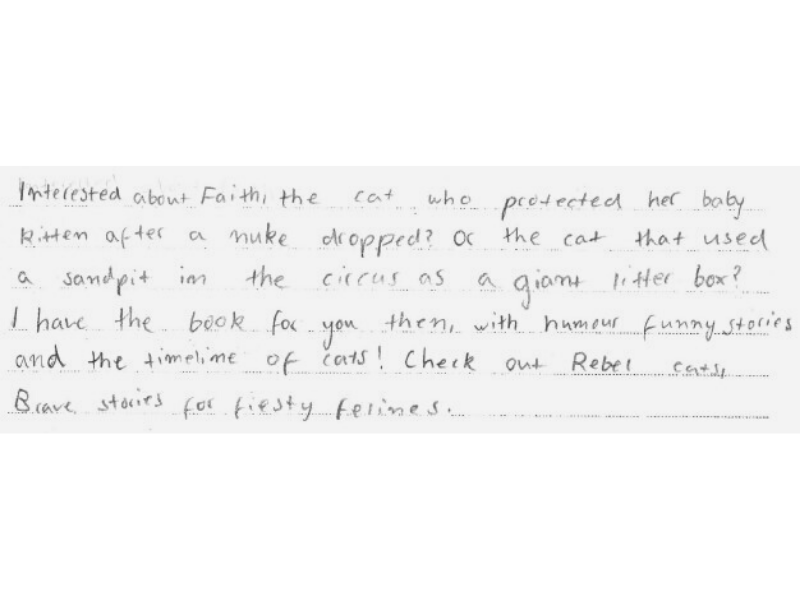 Interested about Faith, the cat who protected her baby
kitten after a nuke dropped? Or the cat that used
a sandpit in the circus as a giant litter box?
I have the book for you then, with humour funny stories
and the timeline of cats! Check out Rebel cats,
Brave stories for fiesty felines.